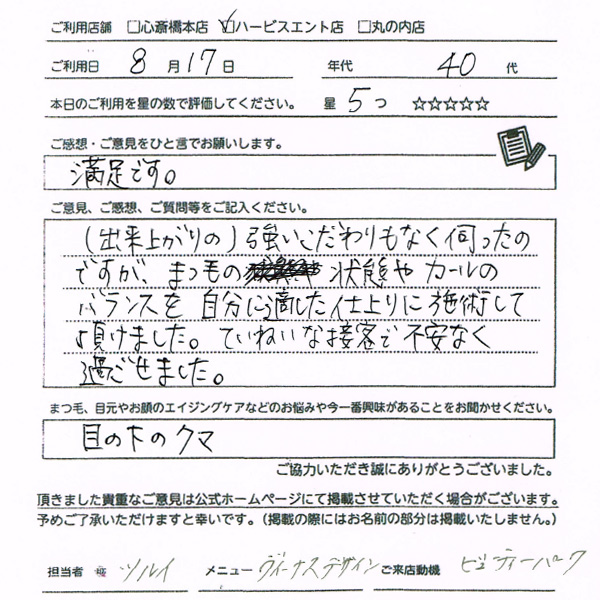 ご利用店舗 □心斎橋本店 ☑ハービスエント店 □丸の内店
ご利用日 8月17日 年代 40代
本日のご利用を星の数で評価してください。 星 5つ ☆☆☆☆☆
ご感想・ご意見をひと言でお願いします。
満足です。
ご意見、ご感想、ご質問等をご記入ください。
(出来上がりの)強いこだわりもなく伺ったの
ですが、まつ毛の状態やカールの
バランスを自分に適した仕上りに施術して
頂けました。ていねいな接客で不安なく
過ごせました。
まつ毛、目元やお顔のエイジングケアなどのお悩みや今一番興味があることをお聞かせください。
目の下のクマ
ご協力いただき誠にありがとうございました。
頂きました貴重なご意見は公式ホームページにて掲載させていただく場合がございます。
予めご了承いただけますと幸いです。(掲載の際にはお名前の部分は掲載いたしません。)
担当者 ツルイ メニュー ヴィーナスデザイン ご来店動機 ビューティーパーク